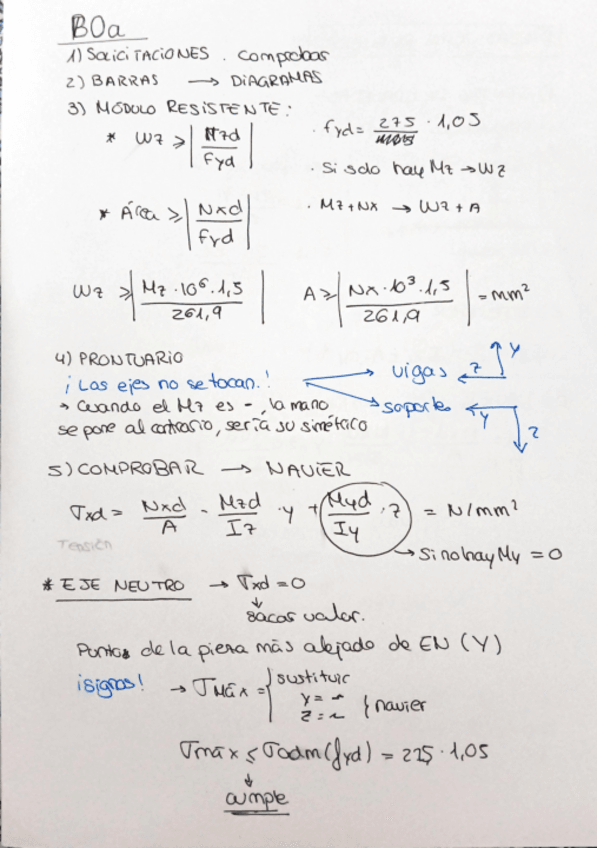 B0a
1) SOLICITACIONES. Comprobar
2) BARRAS → DIAGRAMAS
3) MÓDULO RESISTENTE:
* Wz ≥ |Mzd / fyd| · fyd = 275 / · 1,05
· Si solo hay Mz → Wz
* Área ≥ |Nxd / fyd| · Mz + Nx → Wz + A
Wz ≥ |Mz · 10⁶ · 1,5 / 261,9| A ≥ |Nx · 10³ · 1,5 / 261,9| = mm²
4) PRONTUARIO
¡Los ejes no se tocan.! → vigas z y
→ Cuando el Mz es -, la mano → soportes y z
se pone al contrario, sería su simétrico
5) COMPROBAR → NAVIER
σxd = Nxd / A - Mzd / Iz · y + Myd / Iy · z = N/mm²
Tensión
→ Si no hay My = 0
* EJE NEUTRO → σxd = 0
↓
sacar valor.
Puntos de la pieza más alejado de EN (Y)
¡signos! → σmáx = { sustituir
y = ~
z = ~ } navier
σmáx ≤ σadm (fyd) = 275 · 1,05
↓
cumple